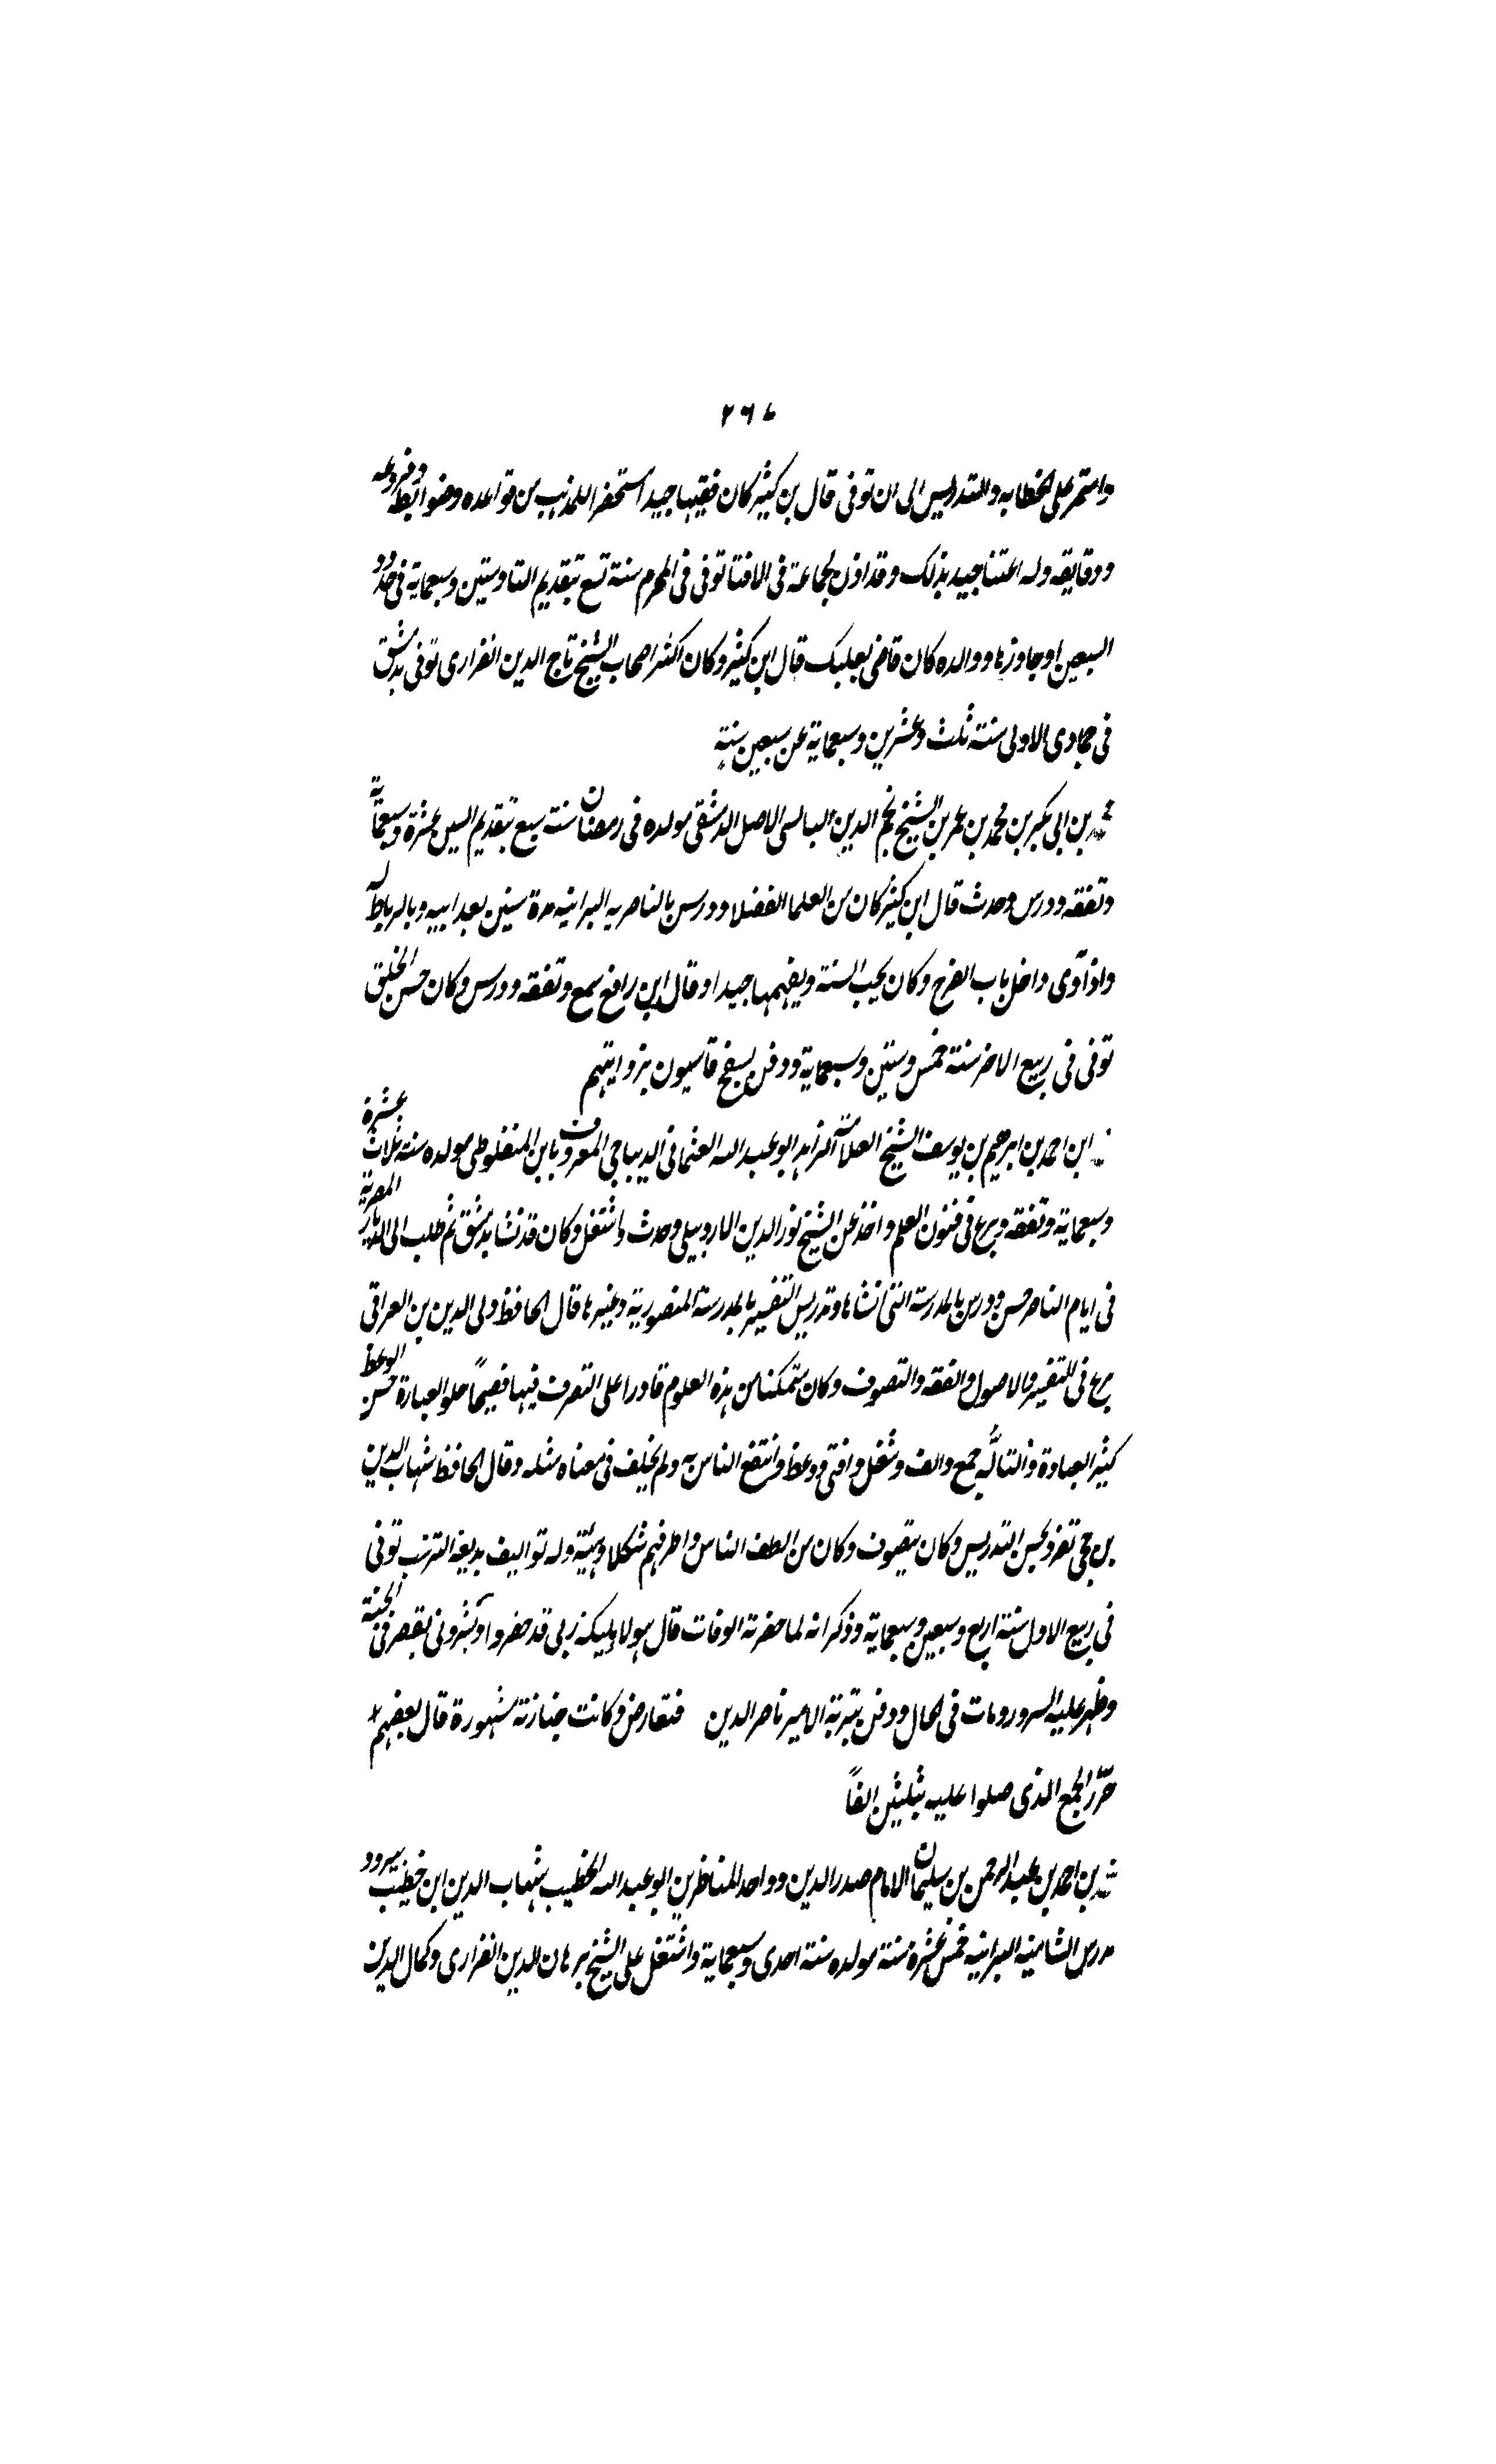 ٢٦٤
واستمر على الخطابه والتدريس الى ان توفى قال بن كثير كان فقيها جيدا مستحضرا للمذهب من قواعده وضوابطه وفروعه
ودقايقه وله اعتنا جيد بذلك وقد اذن لجماعة فى الافتا توفى فى المحرم سنة تسع بتقديم التا وستين وسبعماية فى حدود
السبعين او جاوزها ووالده كان قاضى بعلبك قال ابن كثير وكان اكبر اصحاب الشيخ تاج الدين الفزارى توفى بدمشق
فى جمادى الاولى سنة ثلث وعشرين وسبعماية عن سبعين سنة
محمد بن ابى بكر بن محمد بن عمر بن الشيخ نجم الدين البالسى الاصل الدمشقى مولده فى رمضان سنة سبع بتقديم السين عشرة وسبعماية
وتفقه ودرس وحدث قال ابن كثير كان من العلما الفضلا ودرس بالناصريه البرانيه مدة سنين بعد ابيه وبالرباط له
داخل باب الفرج وكان يحب السنة ويفهمها جيدا وقال ابن رافع سمع وتفقه ودرس وكان حسن الخلق
توفى فى ربيع الاخر سنة خمس وستين وسبعماية ودفن بسفح قاسيون
ابن احمد بن ابرهيم بن يوسف الشيخ العلامة الزاهد ابو عبد الله العثمانى الديباجى المعروف بابن المنفلوطى مولده سنة ثلاث عشرة
وسبعماية وتفقه وبرع فى فنون العلم واخذ عن الشيخ نور الدين الاردبيلى وحدث واشتغل وكان قد نشا بدمشق ثم طلب الى الديار المصرية
فى ايام الناصر حسن ودرس بالمدرسة التى انشاها وتدريس التفسير بالمدرسة المنصورية وغيرها قال الحافظ ولى الدين بن العراقى
برع فى التفسير والاصول والفقه والتصوف وكان متمكنا من هذه العلوم قادرا على التصرف فيها فصيحًا حلو العبارة حسن الوعظ
كثير العبادة والتالّه جمع والف وشغل وافتى ووعظ وانتفع الناس به ولم يخلف فى معناه مثله وقال الحافظ شهاب الدين
بن حجى تفرد بحسن التدريس وكان يتصوف وكان من الطف الناس واظرفهم شكلا وهيئة وله تواليف بديعة الترتيب توفى
فى ربيع الاول سنة اربع وسبعين وسبعماية وذكر انه لما حضرته الوفات قال هولا مليكة ربى قد حضروا وبشرونى بقصر فى الجنة
وظهر عليه السرور ومات فى الحال ودفن بتربة الامير ناصر الدين وكانت جنازته مشهورة قال بعضهم
حزّر الجمع الذى صلوا عليه بثلثين الفاً
بن احمد بن عبد الرحمن بن سليمان الامام صدر الدين وواحد المناظرين ابو عبد الله الخطيب شهاب الدين ابن خطيب يبرود
مدرس الشاميه البرانيه خمس عشرة سنة مولده سنة احدى وسبعماية واشتغل على الشيخ برهان الدين الفزارى وكمال الدين